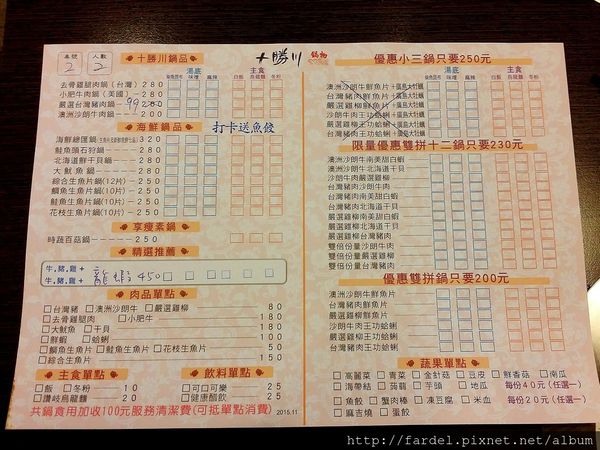 桌號 2 人數 2
十勝川鍋品
湯底
昆布 味噌 麻辣
主食
白飯 烏龍麵 冬粉
去骨雞腿肉鍋(台灣) 280
小肥牛肉鍋(美國) 280
嚴選台灣豬肉鍋 99 200
澳洲沙朗牛肉鍋 200
海鮮鍋品
打卡送魚餃
海鮮總匯鍋 280
鮭魚頭石狩鍋 280
北海道鮮干貝鍋 280
大魷魚鍋 280
綜合生魚片鍋(12片) 280
鯛魚生魚片鍋(10片) 250
鮭魚生魚片鍋(10片) 250
花枝生魚片鍋(10片) 250
享瘦素鍋
時蔬百菇鍋 250
精選推薦
牛,豬,雞 +
牛,豬,雞 + 龍蝦 450
肉品單點
台灣豬 澳洲沙朗牛 嚴選雞柳 80
去骨雞腿肉 小肥牛 180
大魷魚 干貝 180
鮮蝦 蛤蜊 100
鯛魚生魚片 鮭魚生魚片 花枝生魚片 150
綜合生魚片 150
主食單點
飯 冬粉 10
讚岐烏龍麵 20
飲料單點
可口可樂 25
健康醋飲 25
共鍋食用加收100元服務清潔費(可抵單點消費)
2015.11
十勝川 鍋物
優惠小三鍋只要250元
湯底
昆布 味噌 麻辣
主食
白飯 烏龍麵 冬粉
澳洲沙朗牛鮮魚片+廣島大牡蠣
台灣豬肉鮮魚片+廣島大牡蠣
嚴選雞柳鮮魚片+廣島大牡蠣
沙朗牛肉王功蛤蜊+廣島大牡蠣
台灣豬肉王功蛤蜊+廣島大牡蠣
嚴選雞柳王功蛤蜊+廣島大牡蠣
限量優惠雙拼十二鍋只要230元
澳洲沙朗牛南美甜白蝦
澳洲沙朗牛北海道干貝
沙朗牛肉嚴選雞柳
台灣豬肉沙朗牛肉
台灣豬肉南美甜白蝦
台灣豬肉北海道干貝
嚴選雞柳南美甜白蝦
嚴選雞柳北海道干貝
嚴選雞柳台灣豬肉
雙倍份量沙朗牛肉
雙倍份量台灣豬肉
雙倍份量嚴選雞柳
優惠雙拼鍋只要200元
澳洲沙朗牛鮮魚片
台灣豬肉鮮魚片
嚴選雞柳鮮魚片
沙朗牛肉王功蛤蜊
台灣豬肉王功蛤蜊
嚴選雞柳王功蛤蜊
蔬果單點
高麗菜 青菜 金針菇 豆皮 鮮香菇 南瓜
海帶結 蒟蒻 芋頭 地瓜 每份40元(任選一)
魚餃 蟹肉棒 凍豆腐 米血 每份20元(任選一)
麻吉燒 蛋餃
http://fardel.pixnet.net/album